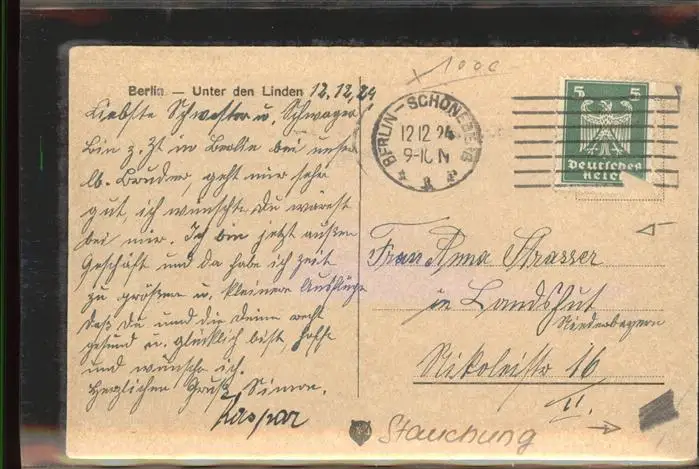 1000
Berlin — Unter den Linden 12.12.24
Liebste Schwester u. Schwager
Bin z. Zt in Berlin bei unser
lb. Bruder, geht mir sehr
gut ich wünschte Du wärest
bei mir. Ich bin jetzt außer
Geschäft und da habe ich zeit
zu größere u. kleinere Ausflüge
daß Du und die Deine recht
gesund u. glücklich bist hoffe
und wünsche ich.
Herzlichen Gruß Simon.
Kaspar
BERLIN-SCHÖNEBERG
12 12 24
9-10 N
5 5
Deutsches
Reich
Frau Anna Strasser
in Landshut
Niederbayern
Nikoleistr 16
II.
Stauchung